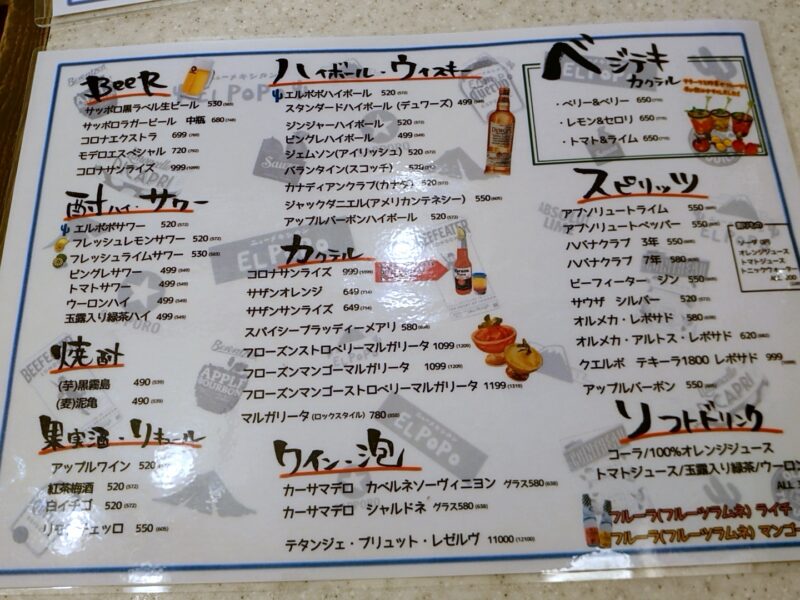 BeeR
サッポロ黒ラベル生ビール 530 (583)
サッポロラガービール 中瓶 680 (748)
コロナエクストラ 699
モデロエスペシャル 720 (792)
コロナサンライズ 999
酎ハイ・サワー
エルポポサワー 520 (572)
フレッシュレモンサワー 520 (572)
フレッシュライムサワー 530 (583)
ピングレサワー 499 (549)
トマトサワー 499 (549)
ウーロンハイ 499 (549)
玉露入り緑茶ハイ 499 (549)
焼酎
(芋)黒霧島 490 (539)
(麦)泥亀 490 (539)
果実酒・リキュール
アップルワイン 520 (572)
紅茶梅酒 520 (572)
白イチゴ 520 (572)
リモンチェッロ 550 (605)
ハイボール・ウイスキー
エルポポハイボール 520 (572)
スタンダードハイボール (デュワーズ) 499 (549)
ジンジャーハイボール 520 (572)
ピングレハイボール 499 (549)
ジェムソン(アイリッシュ) 520 (572)
バランタイン(スコッチ) 520 (572)
カナディアンクラブ(カナダ) 520 (572)
ジャックダニエル(アメリカンテネシー) 550 (605)
アップルバーボンハイボール 520 (572)
カクテル
コロナサンライズ 999
サザンオレンジ 649 (714)
サザンサンライズ 649 (714)
スパイシーブラッディーメアリ 580 (638)
フローズンストロベリーマルガリータ 1099 (1209)
フローズンマンゴーマルガリータ 1099 (1209)
フローズンマンゴーストロベリーマルガリータ 1199 (1319)
マルガリータ (ロックスタイル) 780 (858)
ワイン・泡
カーサマデロ カベルネソーヴィニヨン グラス580 (638)
カーサマデロ シャルドネ グラス580 (638)
テタンジェ・ブリュット・レゼルヴ 11000 (12100)
ベジテキ
カクテル
・ベリー&ベリー 650
・レモン&セロリ 650
・トマト&ライム 650
スピリッツ
アブソリュートライム 550
アブソリュートペッパー 550
ハバナクラブ 3年 550
ハバナクラブ 7年 580
ビーフィーター ジン 550
サウザ シルバー 520
オルメカ・レポサド 580
オルメカ・アルトス・レポサド 620
クエルボ テキーラ1800 レポサド 999
アップルバーボン 550
オレンジジュース
トマトジュース
トニックウォーター
ソフトドリンク
コーラ/100%オレンジジュース
トマトジュース/玉露入り緑茶/ウーロン
ALL 3
フルーラ(フルーツラムネ) ライチ
フルーラ(フルーツラムネ) マンゴー